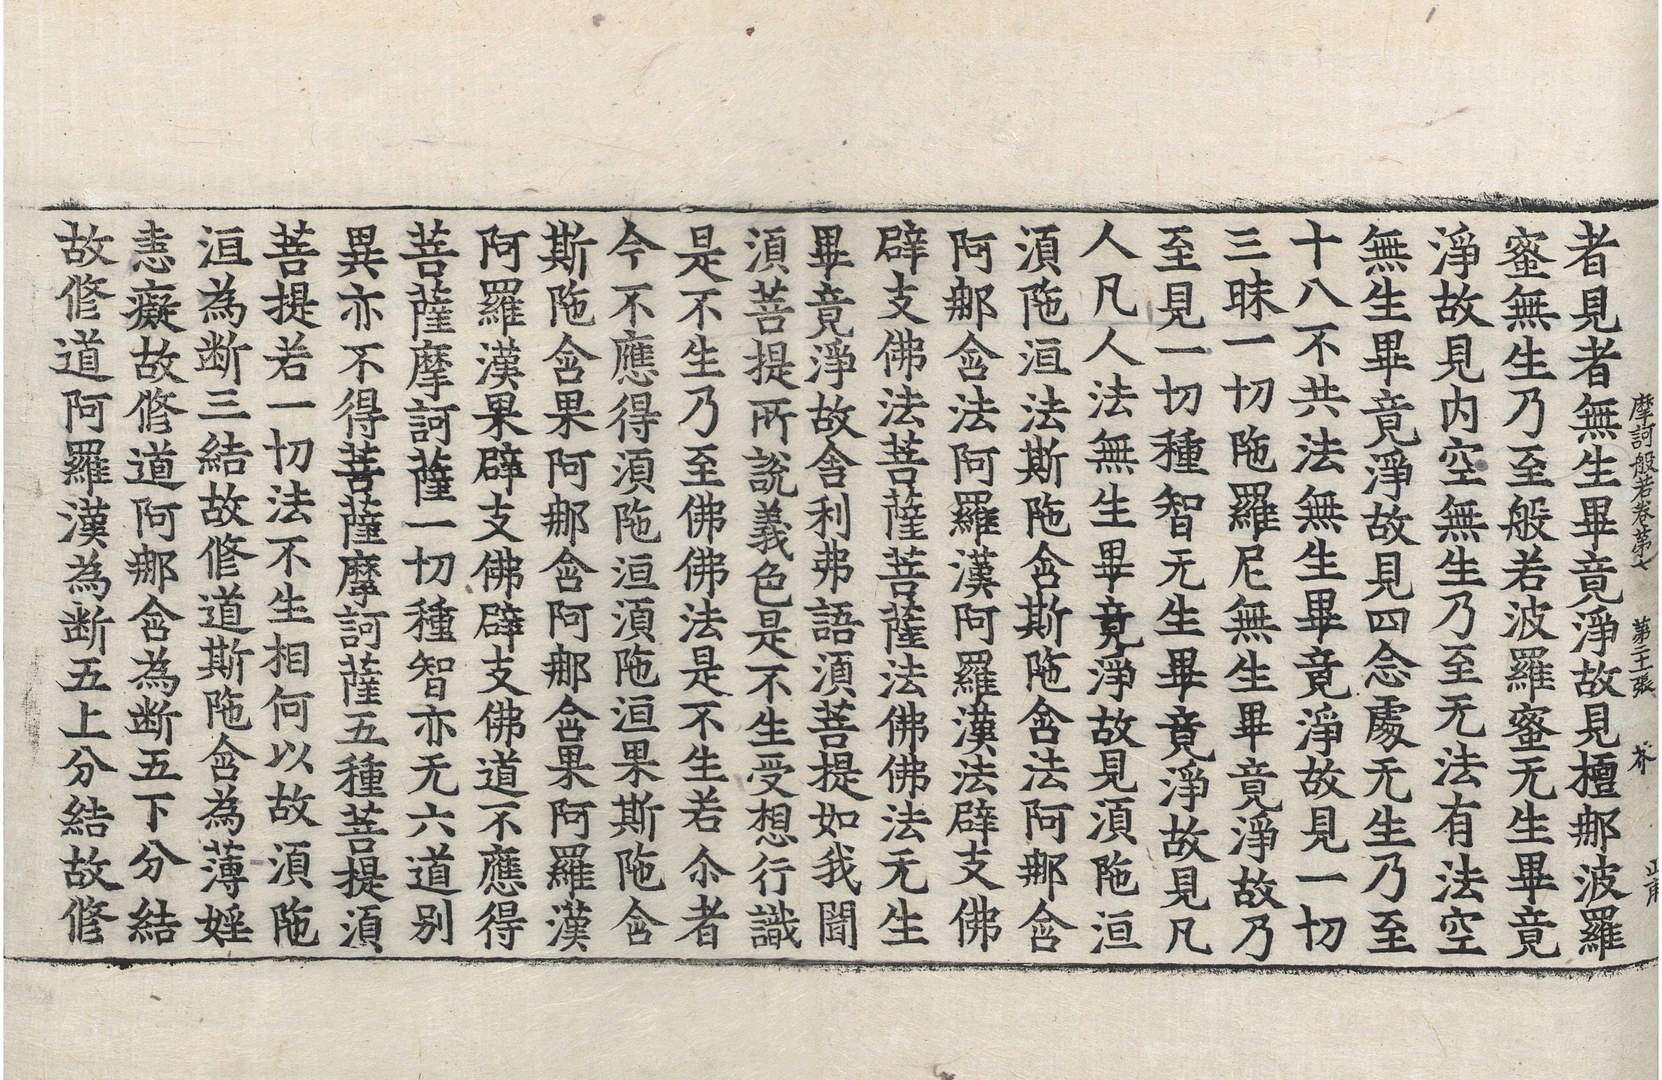 摩訶般若卷第七 第二十二張 芥
者見者無生畢竟淨故見檀那波羅
蜜無生乃至般若波羅蜜无生畢竟
淨故見内空無生乃至无法有法空
無生畢竟淨故見四念處无生乃至
十八不共法無生畢竟淨故見一切
三昧一切陁羅尼無生畢竟淨故乃
至見一切種智无生畢竟淨故見凡
人凡人法無生畢竟淨故見湏陁洹
湏陁洹法斯陁含斯陁含法阿那含
阿那含法阿羅漢阿羅漢法辟支佛
辟支佛法菩薩菩薩法佛佛法无生
畢竟淨故舍利弗語湏菩提如我聞
湏菩提所説義色是不生受想行識
是不生乃至佛佛法是不生若尒者
今不應得湏陁洹湏陁洹果斯陁含
斯陁含果阿那含阿那含果阿羅漢
阿羅漢果辟支佛辟支佛道不應得
菩薩摩訶薩一切種智亦无六道别
異亦不得菩薩摩訶薩五種菩提湏
菩提若一切法不生相何以故湏陁
洹為断三結故修道斯陁含為薄婬
恚癡故修道阿那含為断五下分結
故修道阿羅漢為断五上分結故修